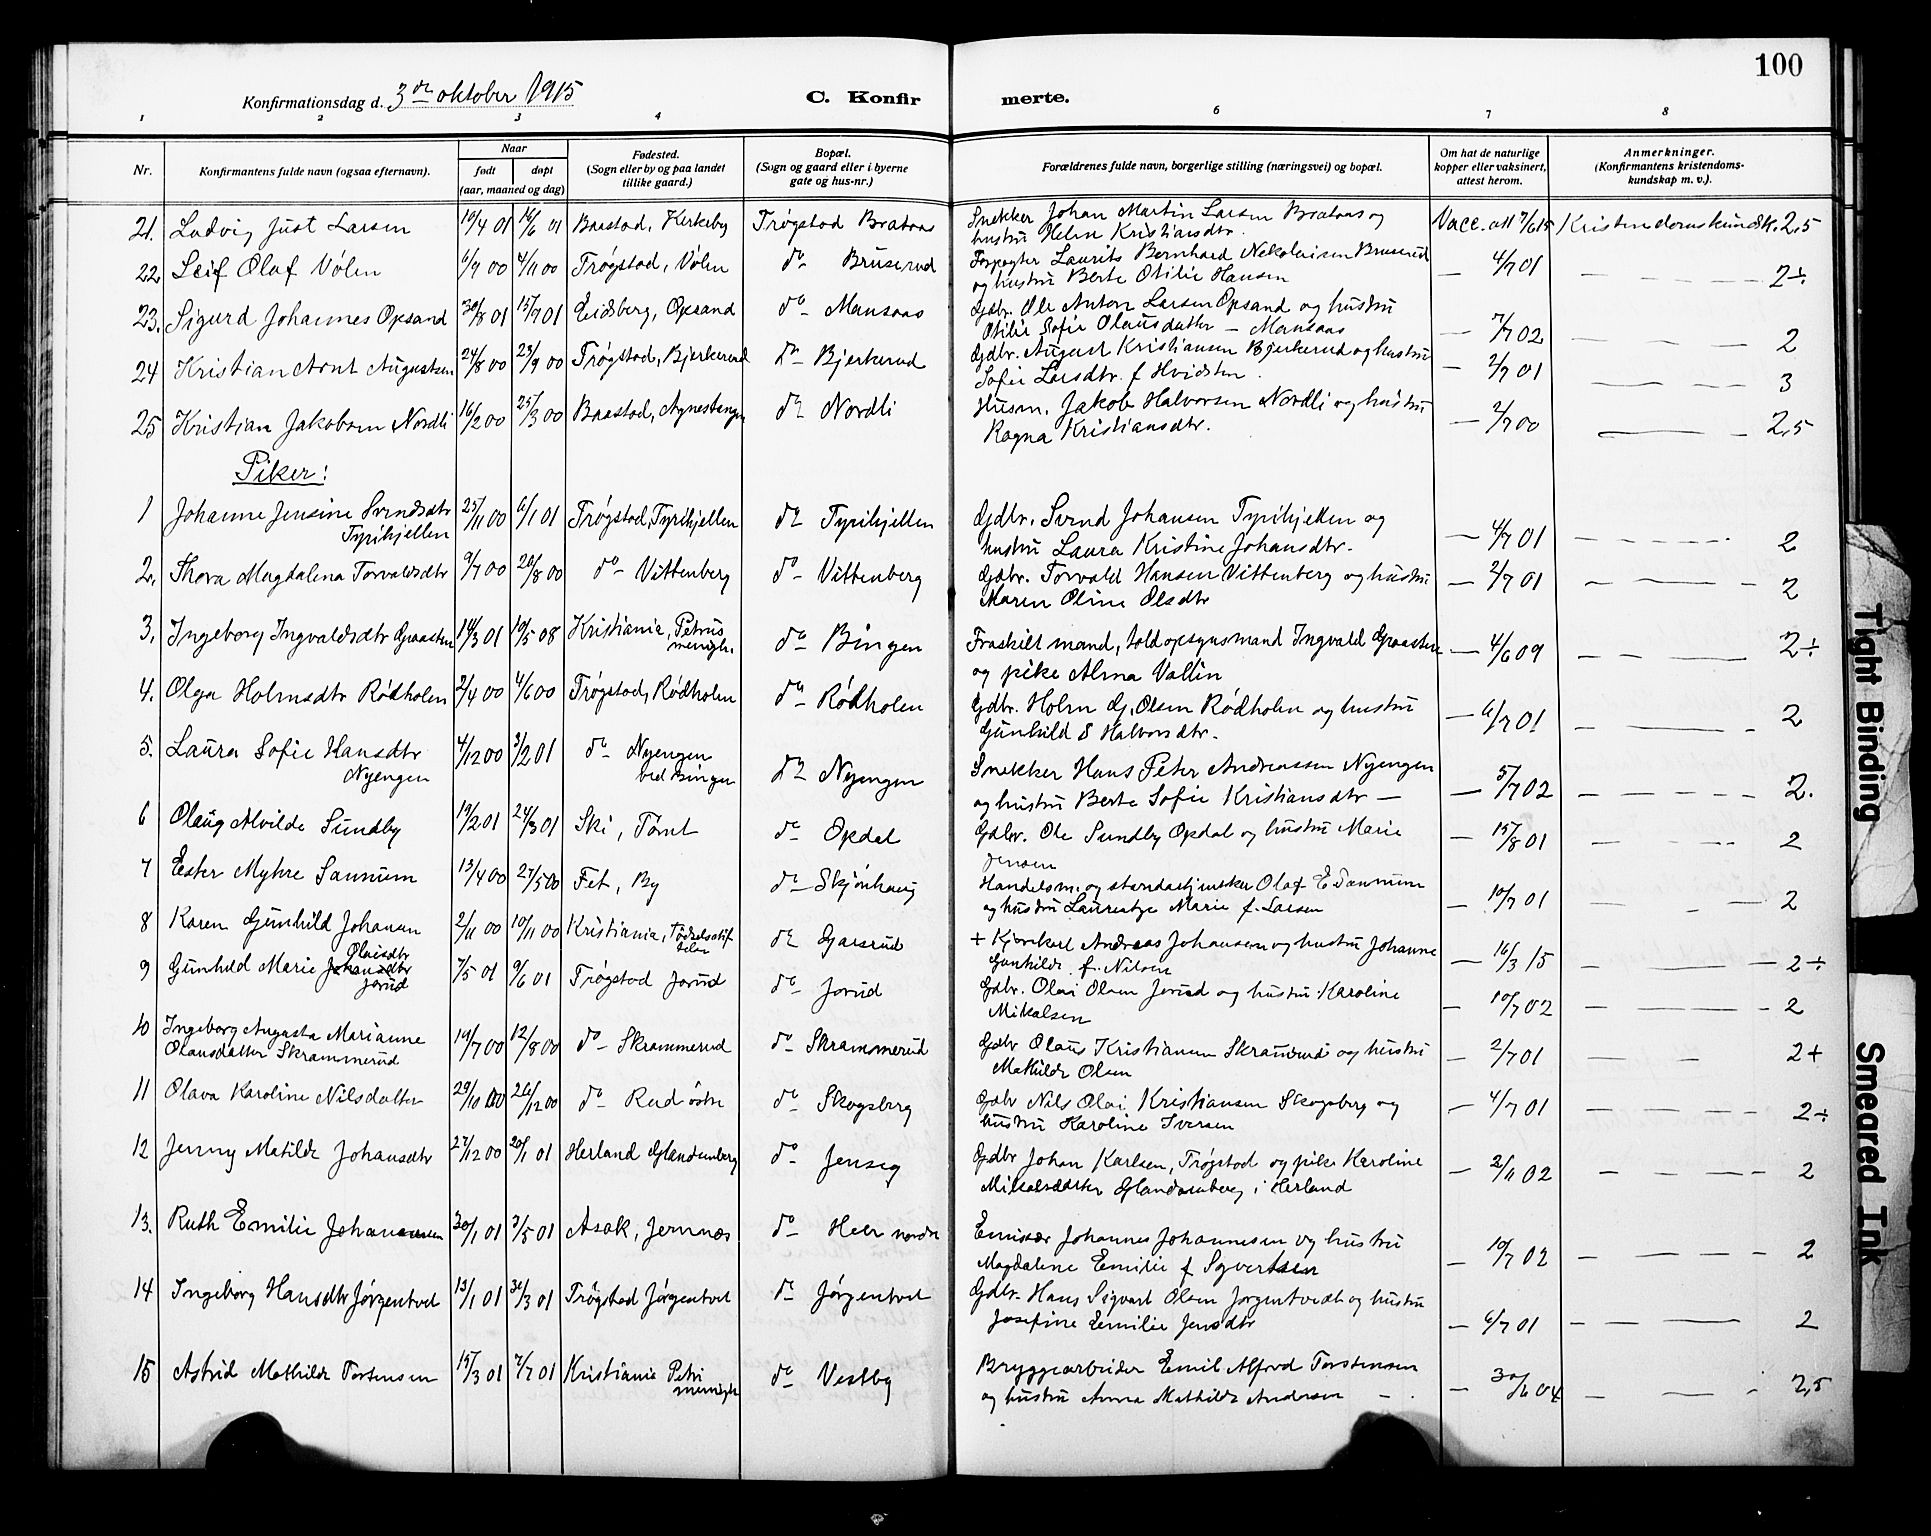 100
Konfirmationsdag d. 3de oktober 1915
C. Konfirmerte.
1 2 3 4 6 7 8
Nr. Konfirmantens fulde navn (ogsaa efternavn). Naar født døpt (aar, maaned og dag) Fødested. (Sogn eller by og paa landet tillike gaard.) Bopæl. (Sogn og gaard eller i byerne gate og hus-nr.) Forældrenes fulde navn, borgerlige stilling (næringsvei) og bopæl. Om hat de naturlige kopper eller vaksinert, attest herom. Anmerkninger. (Konfirmantens kristendoms-kundskap m. v.).
21. Ludvig Just Larsen 10/4 01 16/6 01 Baastad, Kirkeby Trøgstad Brataas Snekker Johan Martin Larsen Brataas og
hustru Helen Kristiansdtr. Vacc. att 7/6 15 Kristendomskundsk. 2,5
22 Leif Olaf Vølen 6/9 00 4/11 00 Trøgstad, Vølen do Bruserud Forpagter Laurits Bernhard Nikolaisen Bruserud
og hustru Berte Otilie Hansen — 4/7 01 2÷
23. Sigurd Johannes Opsand 30/8 01 15/9 01 Eidsberg, Opsand do Mansaas Gdbr. Ole Anton Larsen Opsand og hustru
Otilie Sofie Olausdatter — Mansaas — 7/7 02 2
24 Kristian Arnt Augustsen 24/8 00 23/9 00 Trøgstad, Bjerkerud do Bjerkerud Gdbr. August Kristiansen Bjerkerud og hustru
Sofie Larsdtr. f Hvidsten. — 2/7 01 3
25 Kristian Jakobsen Nordli 16/2 00 25/3 00 Baastad, Agnestangen do Nordli Husm. Jakob Halvorsen Nordli og hustru
Ragna Kristiansdtr. — 2/7 00 2,5
Piker:
1 Johanne Jensine Svendsdtr
Tyrihjellen 25/11 00 6/1 01 Trøgstad, Tyrihjellen do Tyrihjellen Gdbr. Svend Johansen Tyrihjellen og
hustru Laura Kristine Johansdtr. — 4/7 01 2
2. Thora Magdalena Torvaldsdtr 9/7 00 26/8 00 do Vittenberg do Vittenberg Gdbr. Torvald Hansen Vittenberg og hustru
Maren Oline Olsdtr — 2/7 01 2
3. Ingeborg Ingvaldsdtr Graasten 14/3 01 10/5 08 Kristiania, Petrus
menigh. do Bingen Fraskilt mand, toldopsynsmand Ingvald Graasten
og pike Alma Vallin — 4/6 09 2÷
4. Olga Holmsdtr Rødholen 2/4 00 4/6 00 Trøgstad, Rødholen do Rødholen Gdbr. Holm G. Olsen Rødholen og hustru
Gunhild S Halvorsdtr. — 6/7 01 2
5. Laura Sofie Hansdtr
Nyengen 4/12 00 3/2 01 do Nyengen
ved Bingen do Nyengen Snekker Hans Peter Andreassen Nyengen
og hustru Berte Sofie Kristiansdtr — — 5/7 02 2.
6 Olaug Alvilde Sundby 19/2 01 24/3 01 Ski, Tømt do Opdal Gdbr. Ole Sundby Opdal og hustru Marie
Jensen — 15/8 01 2
7 Ester Myhre Sannum 13/4 00 27/5 00 Fet, By do Skjønhaug Handelsm. og skredder Olaf E Sannum
og hustru Laurentze Marie f. Larsen — 10/7 01 2
8 Karen Gunhild Johansen 2/11 00 10/11 00 Kristiania, Fødselsstif-
telsen do Garsrud + Kjørekarl Andreas Johansen og hustru Johanne
Gunhilde f. Nilsen — 16/3 15 2÷
9 Gunhild Marie Johansdtr Olaisdtr
Jorud 7/5 01 9/6 01 Trøgstad Jorud do Jorud Gdbr. Olai Olsen Jorud og hustru Karoline
Mikalsen — 10/7 02 2
10 Ingeborg Augusta Marianne
Olausdatter Skrammerud 19/7 00 12/8 00 do Skrammerud do Skrammerud Gdbr Olaus Kristiansen Skramrud og hustru
Mathilde Olsen — 2/7 01 2+
11 Olava Karoline Nilsdatter 29/10 00 26/12 00 do Rud østre do Skogsberg Gdbr Nils Olai Kristiansen Skogsberg og
hustru Karoline Iversen — 4/7 01 2÷
12 Jenny Matilde Johansdtr 27/12 00 20/1 01 Herland Glandenberg do Jenseg Gdbr Johan Karlsen, Trøgstad og pike Karoline
Mikalsdatter Glandenberg i Herland — 2/11 02 2
13. Ruth Emilie Johannessen 30/1 01 3/5 01 Asak, Jernnæs do Heer nordre Emissær Johannes Johannesen og hustru
Magdalene Emilie f Syvertsen — 10/7 02 2
14 Ingeborg Hansdtr Jørgentvet 13/1 01 31/3 01 Trøgstad Jørgentvet do Jørgentvet Gdbr. Hans Sigvart Olsen Jørgentvedt og hustru
Josefine Emilie Jensdtr — 6/7 01 2
15 Astrid Mathilde Torstensen 15/3 01 7/7 01 Kristiania Petri
menigh do Vestby Bryggearbeider Emil Alfred Torstensen
og hustru Anna Mathilde Andersen — 30/6 04 2,5
Tight Binding
Smeared Ink